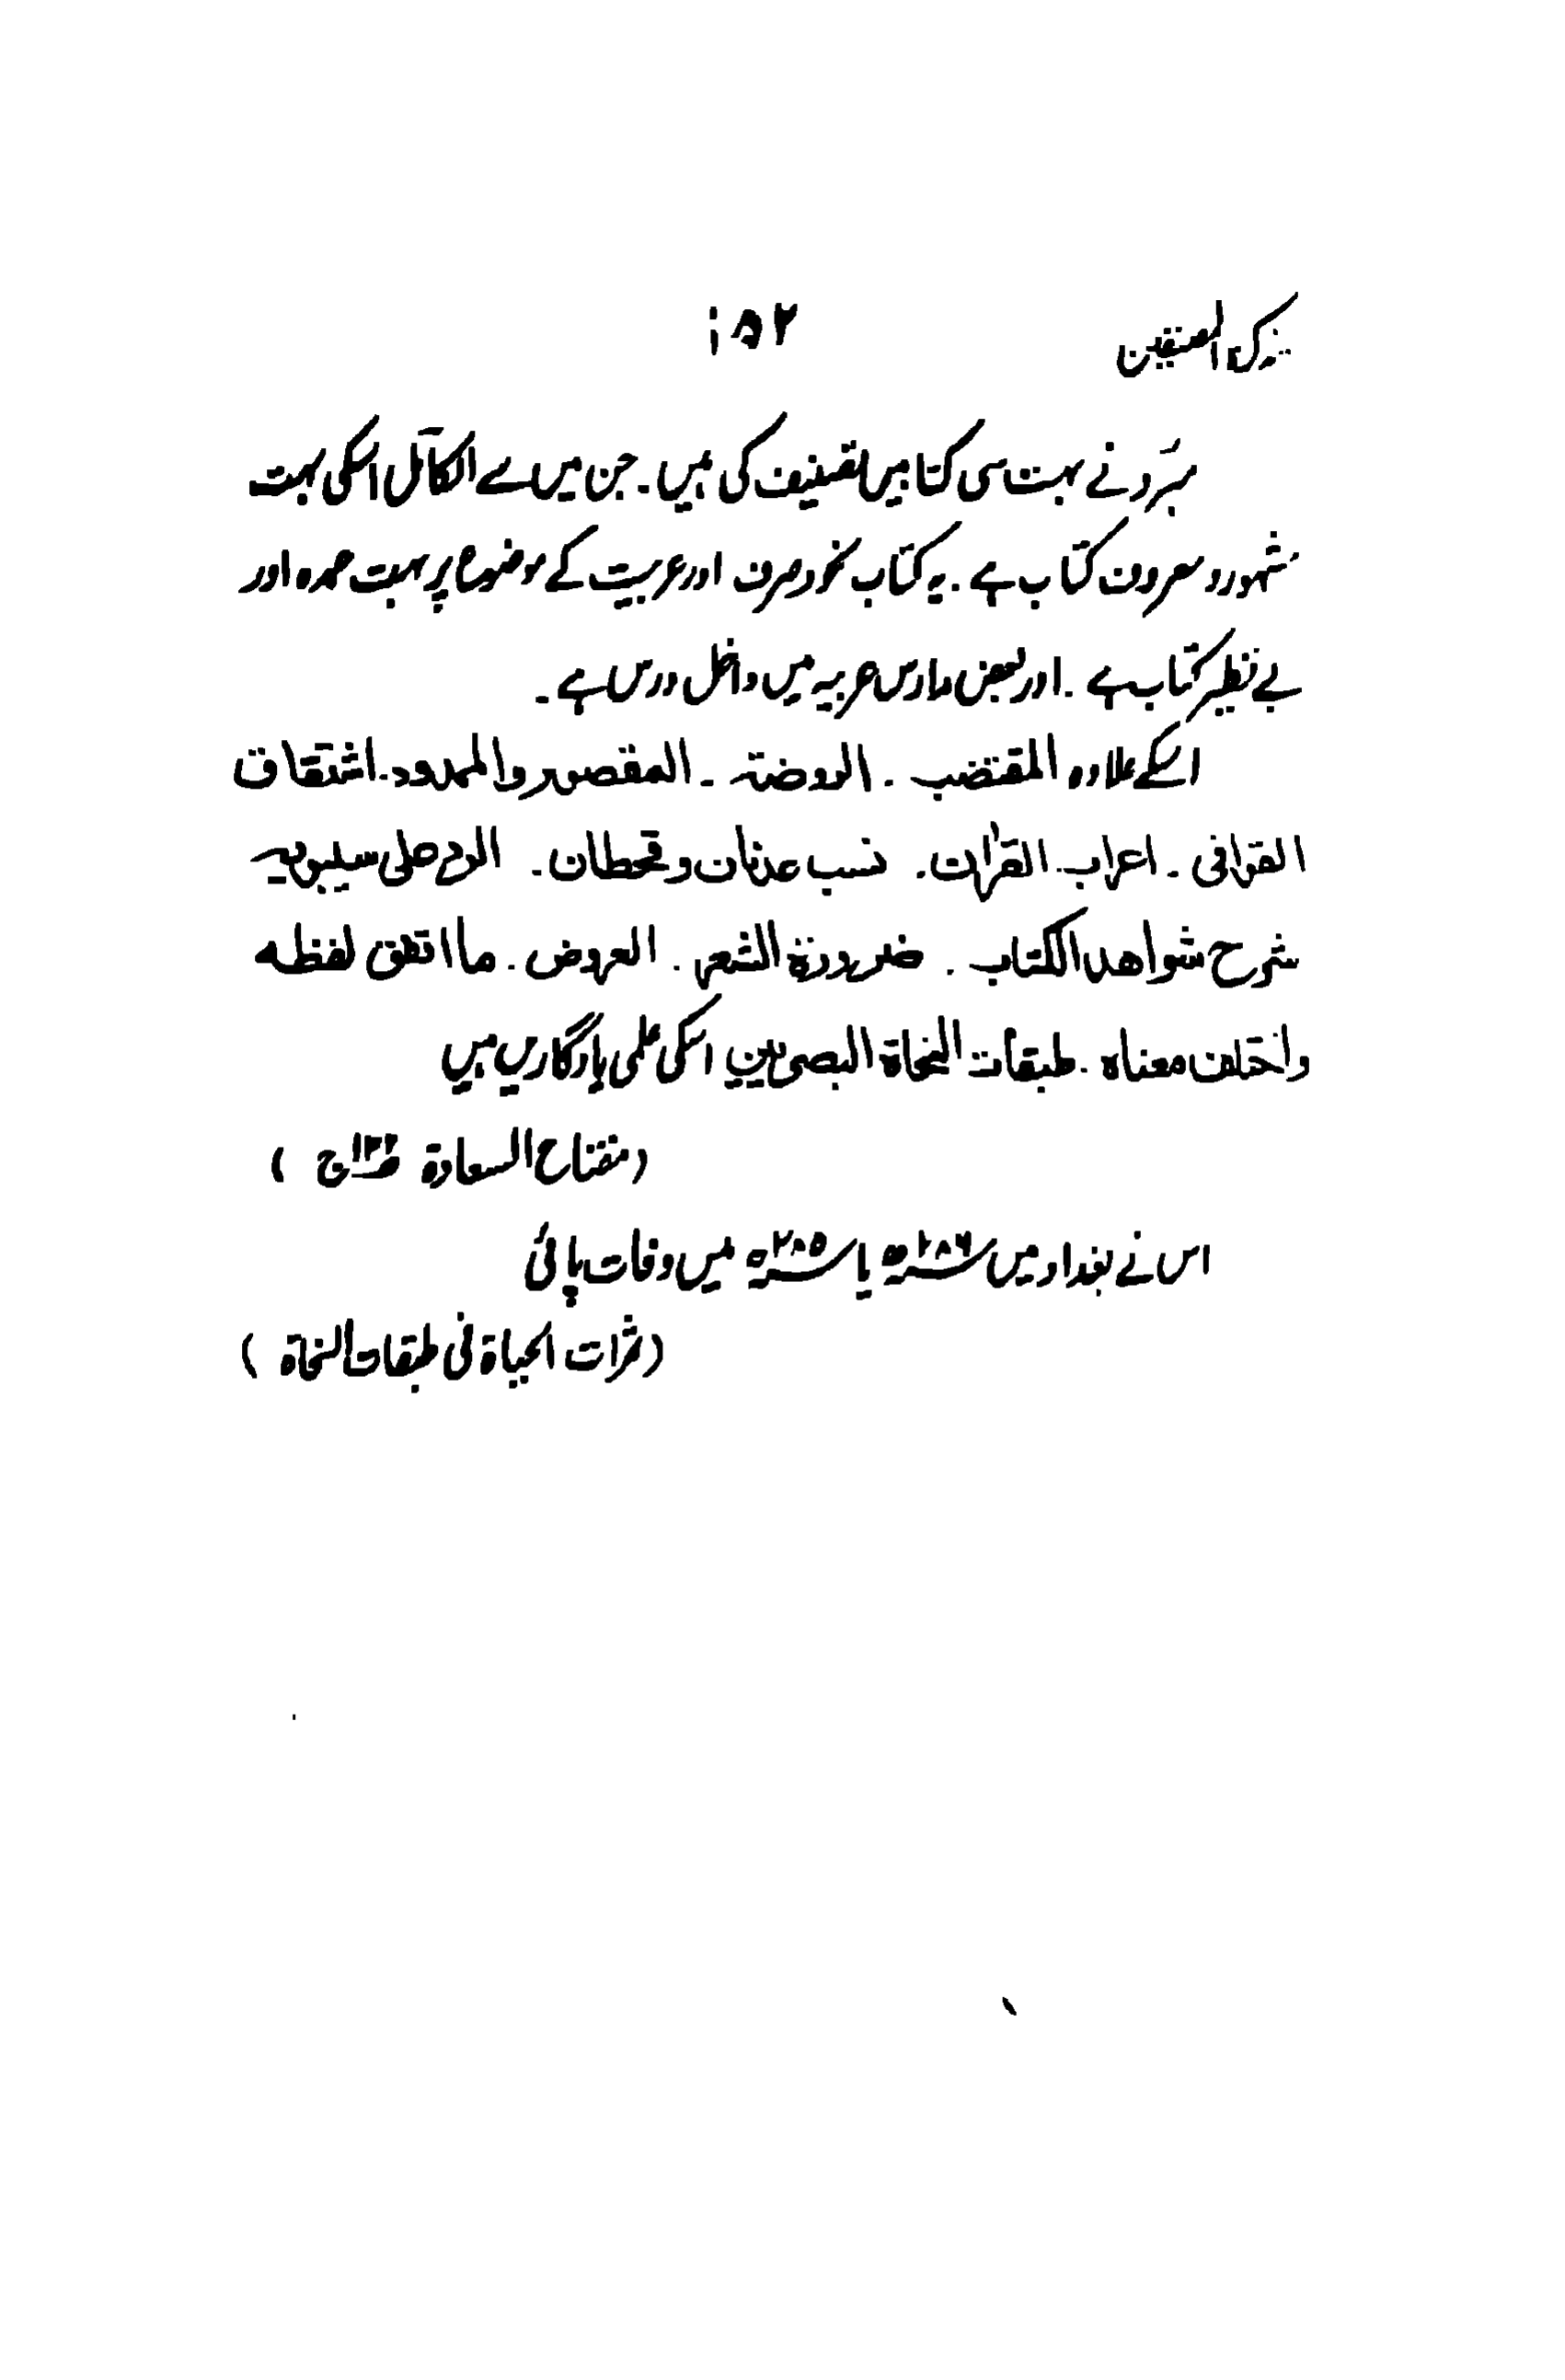 تذکرۃ المصنفین
۱۵۲
مبرّد نے بہت سی کتابیں تصنیف کی ہیں۔ جن میں سے الکامل اسکی بہت
مشہور و معروف کتاب ہے۔ یہ کتاب نحو و صرف اور عربیت کے موضوع پر بہت عمدہ اور
بے نظیر کتاب ہے۔ اور بعض مدارس عربیہ میں داخل درس ہے۔
اسکے علاوہ المقتضب۔ الروضۃ۔ المقصور والممدود۔ اشتقاق
القوافی۔ اعراب القرآن۔ نسب عدنان وقحطان۔ الرد علی سیبویہ
شرح شواهد الکتاب۔ ضرورة الشعر۔ العروض۔ ما اتفق لفظه
واختلف معناہ۔ طبقات النحاة البصریین اسکی علمی یادگاریں ہیں
(مفتاح السعادۃ)
اس نے بغداد میں ۲۸۶ھ یا ۲۸۵ھ میں وفات پائی
(ثمرات الحیاۃ فی طبقات النحاۃ)